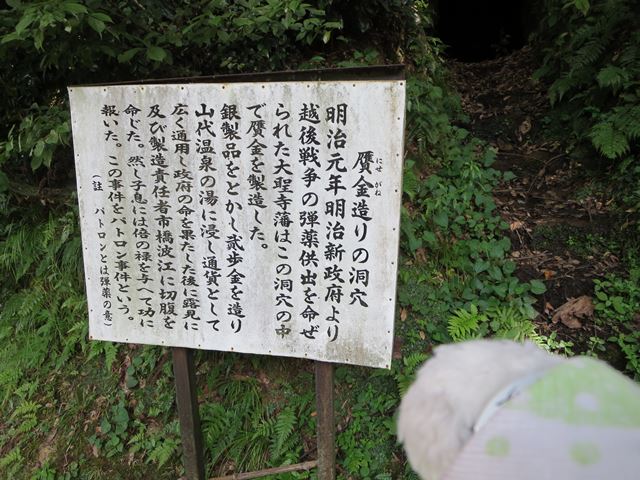 贋金造りの洞穴
にせがね
明治元年明治新政府より
越後戦争の弾薬供出を命ぜ
られた大聖寺藩はこの洞穴の中
で贋金を製造した。
銀製品をとかし弐歩金を造り
山代温泉の湯に浸し通貨として
広く通用し政府の命を果たした後に露見に
及び製造責任者市橋波江に切腹を
命じた。然し子息には倍の禄を与へて功に
報いた。この事件をパトロン事件という。
(註 パトロンとは弾薬の意)